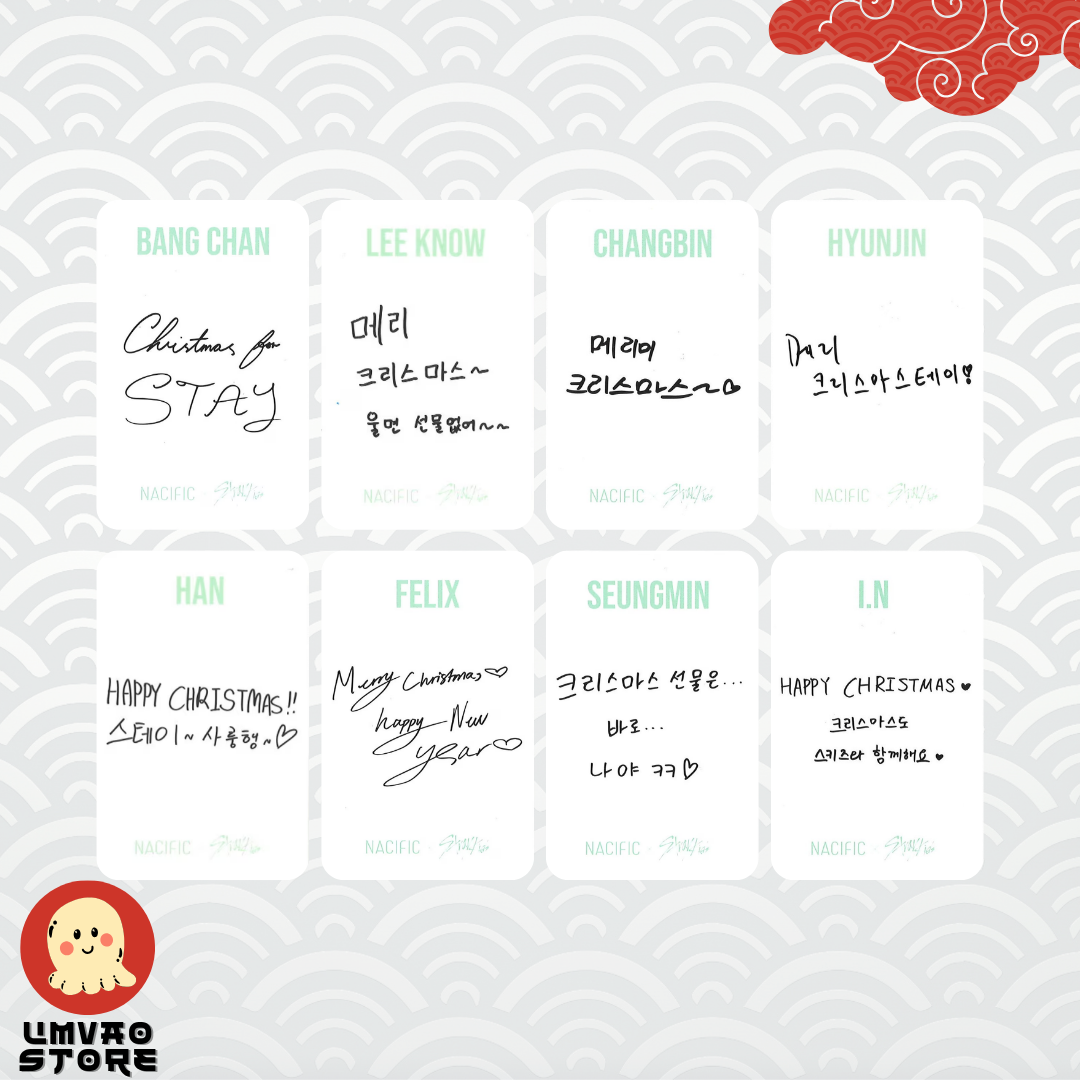 BANG CHAN
Christmas for
STAY
NACIFIC
LEE KNOW
메리
크리스마스~
울면 선물없어~~
NACIFIC
CHANGBIN
메리미
크리스마스~♡
NACIFIC
HYUNJIN
메리
크리스마스 스테이!
NACIFIC
HAN
HAPPY CHRISTMAS!!
스테이~ 사룽행~♡
NACIFIC
FELIX
Merry Christmas♡
happy New
year♡
NACIFIC
SEUNGMIN
크리스마스 선물은...
바로...
나야 ㅋㅋ♡
NACIFIC
I.N
HAPPY CHRISTMAS♥
크리스마스도
스키즈랑 함께해요♥
NACIFIC
UMVAO
STORE